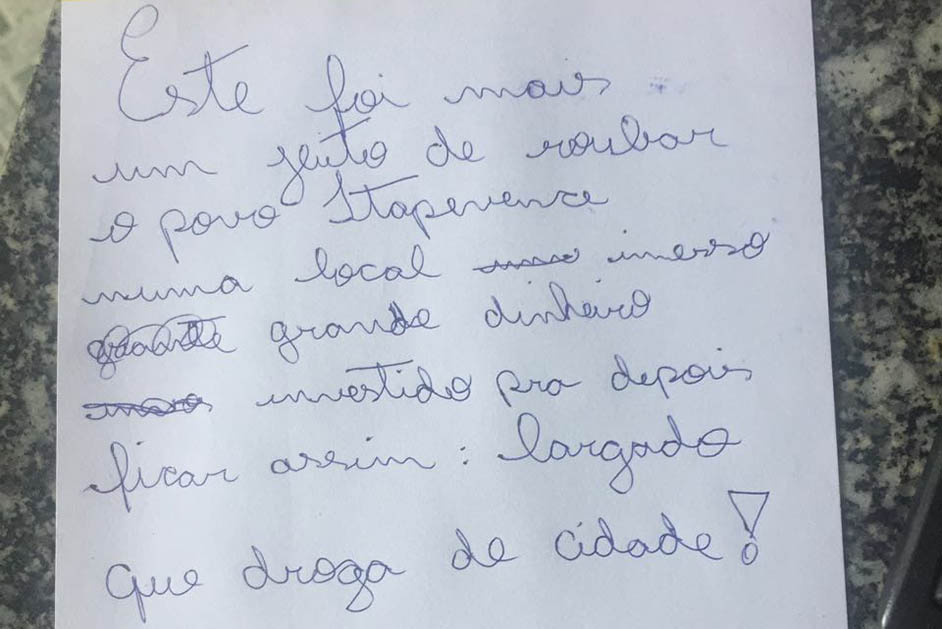 Este foi mais
um jeito de roubar
o povo Itapevence
numa local imenso
grande dinheiro
investido pra depois
ficar assim: largado
que droga de cidade!